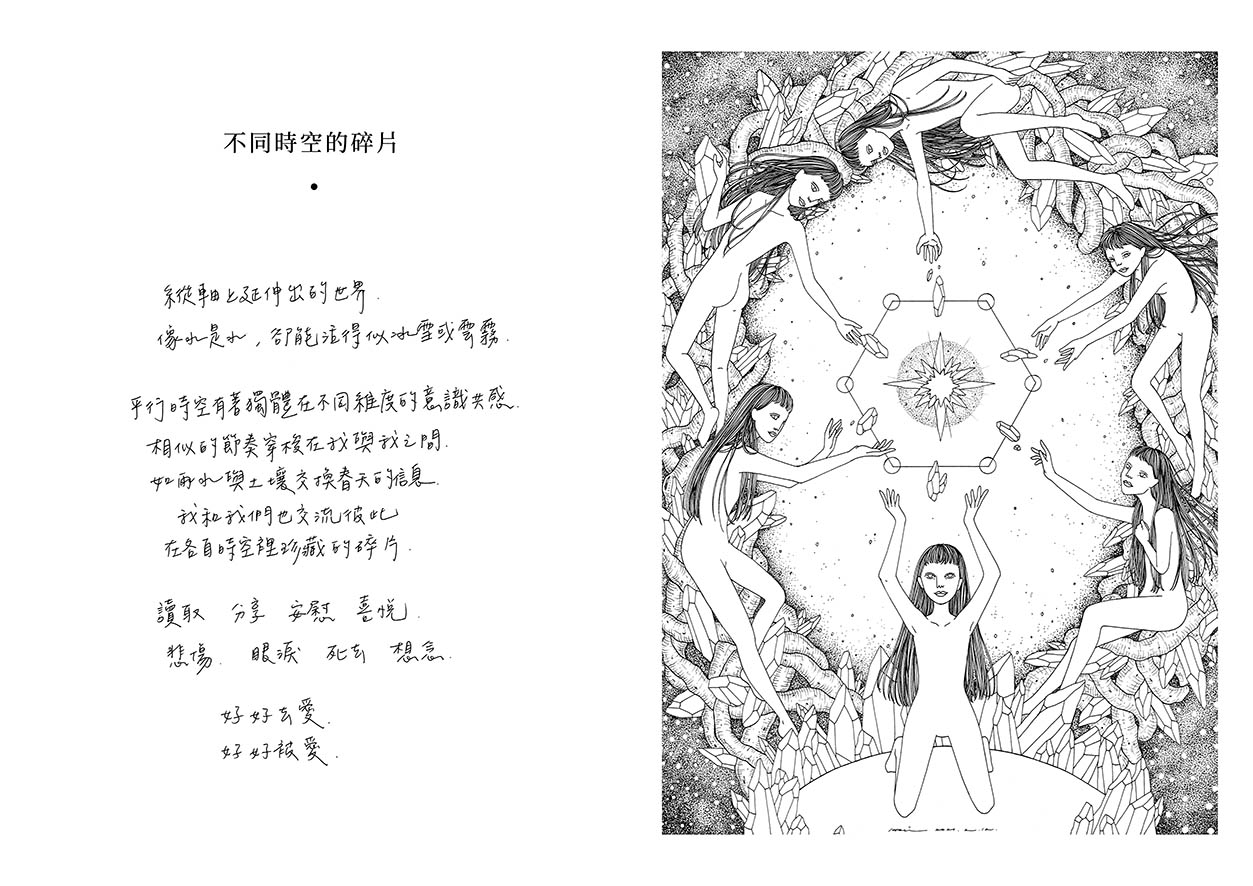 不同時空的碎片
縱軸上延伸出的世界.
像水是水，卻能活得似冰雪或雲霧.
平行時空有著獨體在不同維度的意識共感.
相似的節奏穿梭在我與我之間.
如雨水與土壤交換春天的信息.
我和我們也交流彼此
在各自時空裡珍藏的碎片.
讀取 分享 安慰 喜悅.
悲傷. 眼淚 死去 想念.
好好去愛.
好好被愛.